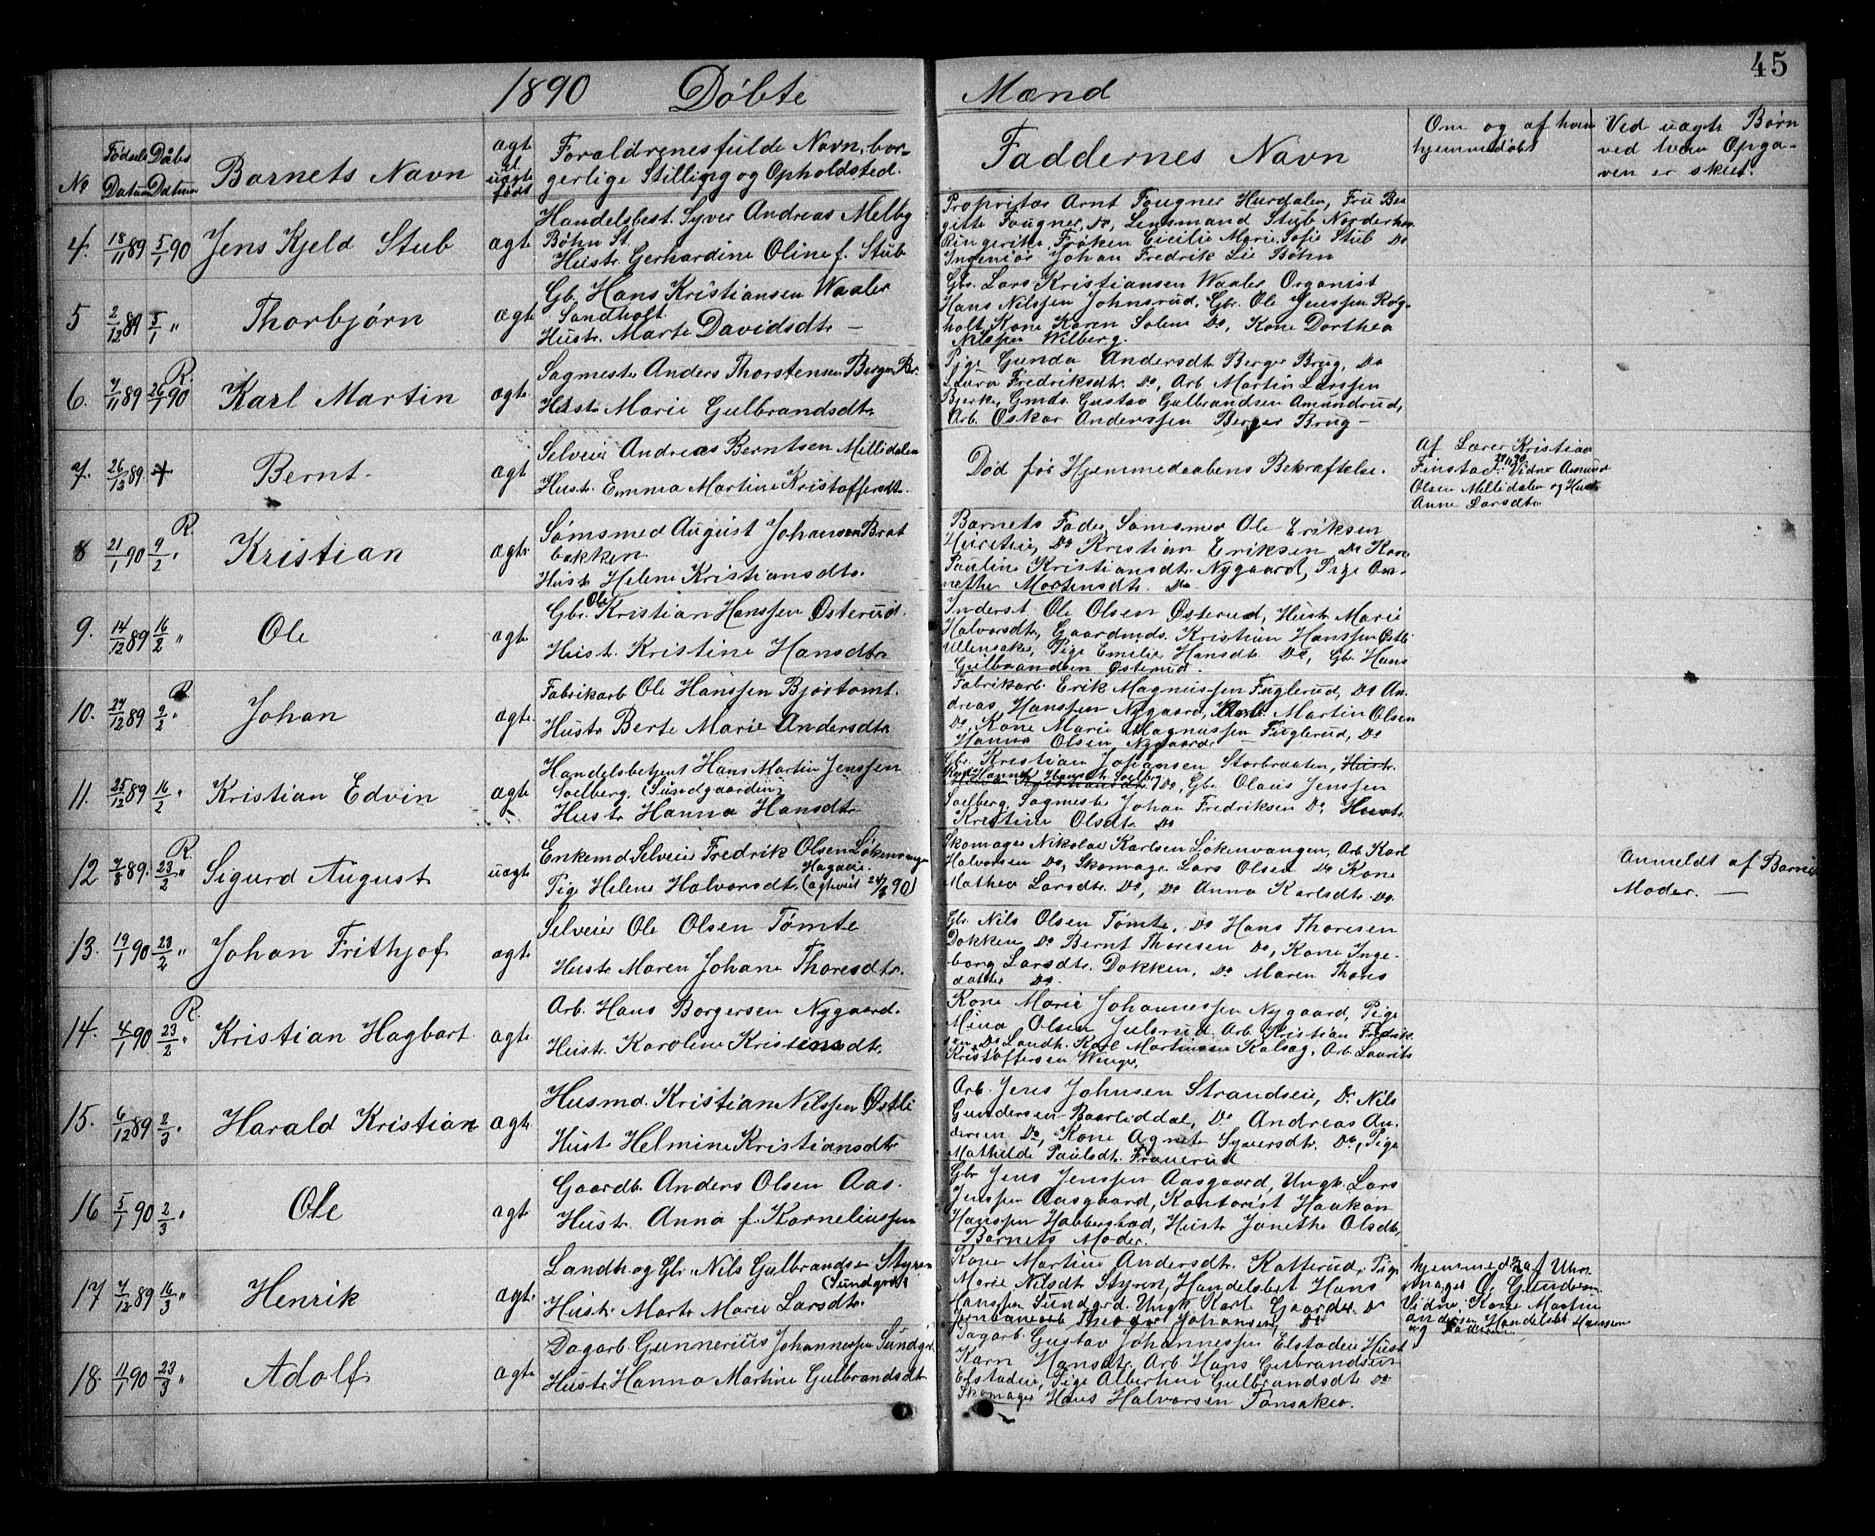 45
1890 Døbte Mænd
No Fødsels Datum Dåbs Datum Barnets Navn ægte el uægte født Forældrenes fulde Navn, bor-
gerlige Stilling og Opholdsted.
Faddernes Navn
Om og af hvem
hjemmedøbt
Ved uægte Børn
ved hvem Opga-
ven er skeet.
4. 18/11 89 5/1 90 Jens Kjeld Stub ægte
Handelsbest. Syver Andreas Melby
Bøhn St.
Hustr. Gerhardine Oline f. Stub
Propritær Arnt Fougner Hurdalen, Fru Ber
gitte Fougner, Do, Lensmand Stub Norderhov
Ringerike, Frøken Cicilie Marie Sofie Stub Do
Ingeniør Johan Fredrik Lie Bøhn
5 2/12 89 5/1 " Thorbjørn ægt.
Gb. Hans Kristiansen Waaler
Sandholt
Hustr. Marte Davidsdtr. —
Gbr. Lars Kristiansen Waaler Organist
Hans Nilssen Johnsrud, Gbr. Ole Jenssen Rog-
holt, Kone Karen Solem Do, Kone Dorthea
Nilssen Wilberg.
6. 7/11 89 26/1 90 R. Karl Martin ægt.
Sagmester Anders Thorstensen Berger Br.
Hustr. Marie Gulbrandsdtr.
Pige Gunda Andersdt. Berger Brug, Do
Laura Fredriksdtr. Do, Arb. Martin Larssen
Bjerke, Gmds. Gustav Gulbrandsen Amundrud,
Arb. Oskar Anderssen Berger Brug —
7. 26/12 89 Bernt. ægt
Selveier Andreas Berntsen Millidalen
Hustr. Emma Martine Kristoffersdt.
Død før Hjemmedaabens Bekræftelse.
Af Lærer Kristian
Finstad. Vidner Amund
Olsen Millidalen og Hustr
Anne Larsdtr
8 21/1 90 9/2 " R. Kristian ægt.
Sømsmed August Johansen Brat
bakken
Hustr. Helene Kristiansdtr.
Barnets Fader, Sømsmed Ole Eriksen
Do Kristian Eriksen Do Kone
Pauline Kristiansdtr. Nygaard, Pige An-
nethe Mortensdt. Do
9. 14/12 89 16/2 " Ole ægt.
Gbr. Ole Kristian Hanssen Østerud.
Hust. Kristine Hansdtr
Inderst Ole Olsen Østerud, Hustr. Marie
Halvorsdt, Gaardmds. Kristian Hanssen Østli
Ullensaker, Pige Emilie Hansdt. Do, Gb. Hans
Gulbrandsen Østerud.
10. 24/12 89 9/2 " R Johan ægt.
Fabrikarb Ole Hanssen Bjørtomt.
Hustr Berte Marie Andersdtr
Fabrikarb. Erik Magnussen Fuglerud, Do An-
dreas Hanssen Nygaard, Karl Martin Olsen
Do, Kone Marie Magnussen Fuglerud, Do
Hanna Olsen Nygaard
11. 25/12 89 16/2 " Kristian Edvin ægt.
Handelsbetjent Hans Martin Jenssen
Soelberg (Sundgaarden)
Hustr Hanna Hansdtr.
Gb. Kristian Johansen Storbraaten, Hustr.
Do, Gbr. Olaus Jenssen
Soelberg, Sagmester Johan Fredriksen Do, Hustr.
Kristine Olsdt. Do
12 7/8 89. 23/2 " R. Sigurd August uægt
Enkemd Selveier Fredrik Olsen Løkenvangen
Pige Helene Halvorsdt. (ægteviet 24/3 90)
Skomager Nikolai Karlsen Løkenvangen, Arb. Karl
Halvorsen Do, Skomager Lars Olsen Do Kone
Mathea Larsdtr. Do, Do Anna Karlsdtr Do.
Anmeldt af Barnets
Moder. —
13. 19/1 90 23/2 " Johan Frithjof ægt.
Selveier Ole Olsen Tømte
Hustr Maren Johane Thoresdtr.
Gb. Nils Olsen Tømte, Do Hans Thoresen
Dokken Do Bernt Thoresen Do, Kone Inge-
borg Larsdtr. Dokken, Do Maren Thores
datter Do.
14. 4/1 90 23/2 " R. Kristian Hagbart ægt.
Arb. Hans Borgersen Nygaard.
Hustr. Karoline Kristensdtr.
Kone Marie Johannessen Nygaard, Pige
Mina Olsen Julsrud, Arb. Kristian Fredrik
sen Do Landh. Karl Martinsen Kalsag, Arb. Laurits
Kristoffersen Wenger.
15. 6/12 89 2/3 " Harald Kristian ægt.
Husmd. Kristian Nilssen Østli
Hust Helmine Kristiansdtr
Arb. Jens Johnsen Strandseie, Do Nils
Gundersen Baarliddal, Do Andreas An-
dersen Do, Kone Agnete Syversdtr. Do, Pige
Mathilde Paulsdt. Frauerud
16 5/1 90 2/3 " Ole ægt.
Gaardb. Anders Olsen Aas.
Hustr. Anna f. Korneliussen
Gbr Jens Jenssen Aasgaard, Ungk Lars
Jenssen Aasgaard, Kontorist Haakon
Hanssen Habberstad, Hustr Janethe Olsdtr,
Barnets Moder.
17 7/12 89 16/3 " Henrik ægt.
Landh. og Gbr. Nils Gulbrandsen Styren
(Sundgrd)
Hustr. Marte Marie Larsdtr.
Kone Martine Andersdt. Katterud, Pige
Marie Nilsdt Styren, Handelsbet Hans
Hanssen Sundgrd. Ungk Karl Gaarder Do
Jernbanearb Theodor Johansen, Do
hjemmedøbt af Uhr.
mager O. Gundersen
Vidner Kone Martine
Andersen Handelsbet Hanssen
og Faderen
18. 11/1 90 23/3 " Adolf. ægt.
Dagarb. Gunnerius Johannessen Sundgr.
Hustr. Hanna Martine Gulbrandsdt
Dagarb. Gustav Johannessen Elstadeie Hust
Karn Hansdtr, Arb. Hans Gulbrandsen
Elstadeie, Pige Albertine Gulbrandsdt Do
Skomager Hans Halvorsen Tønsaker.